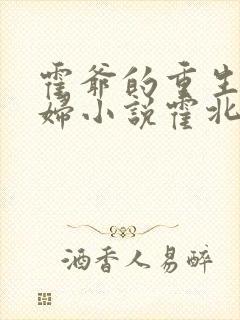 霍爷的重生
妇小说霍北
酒香人易醉